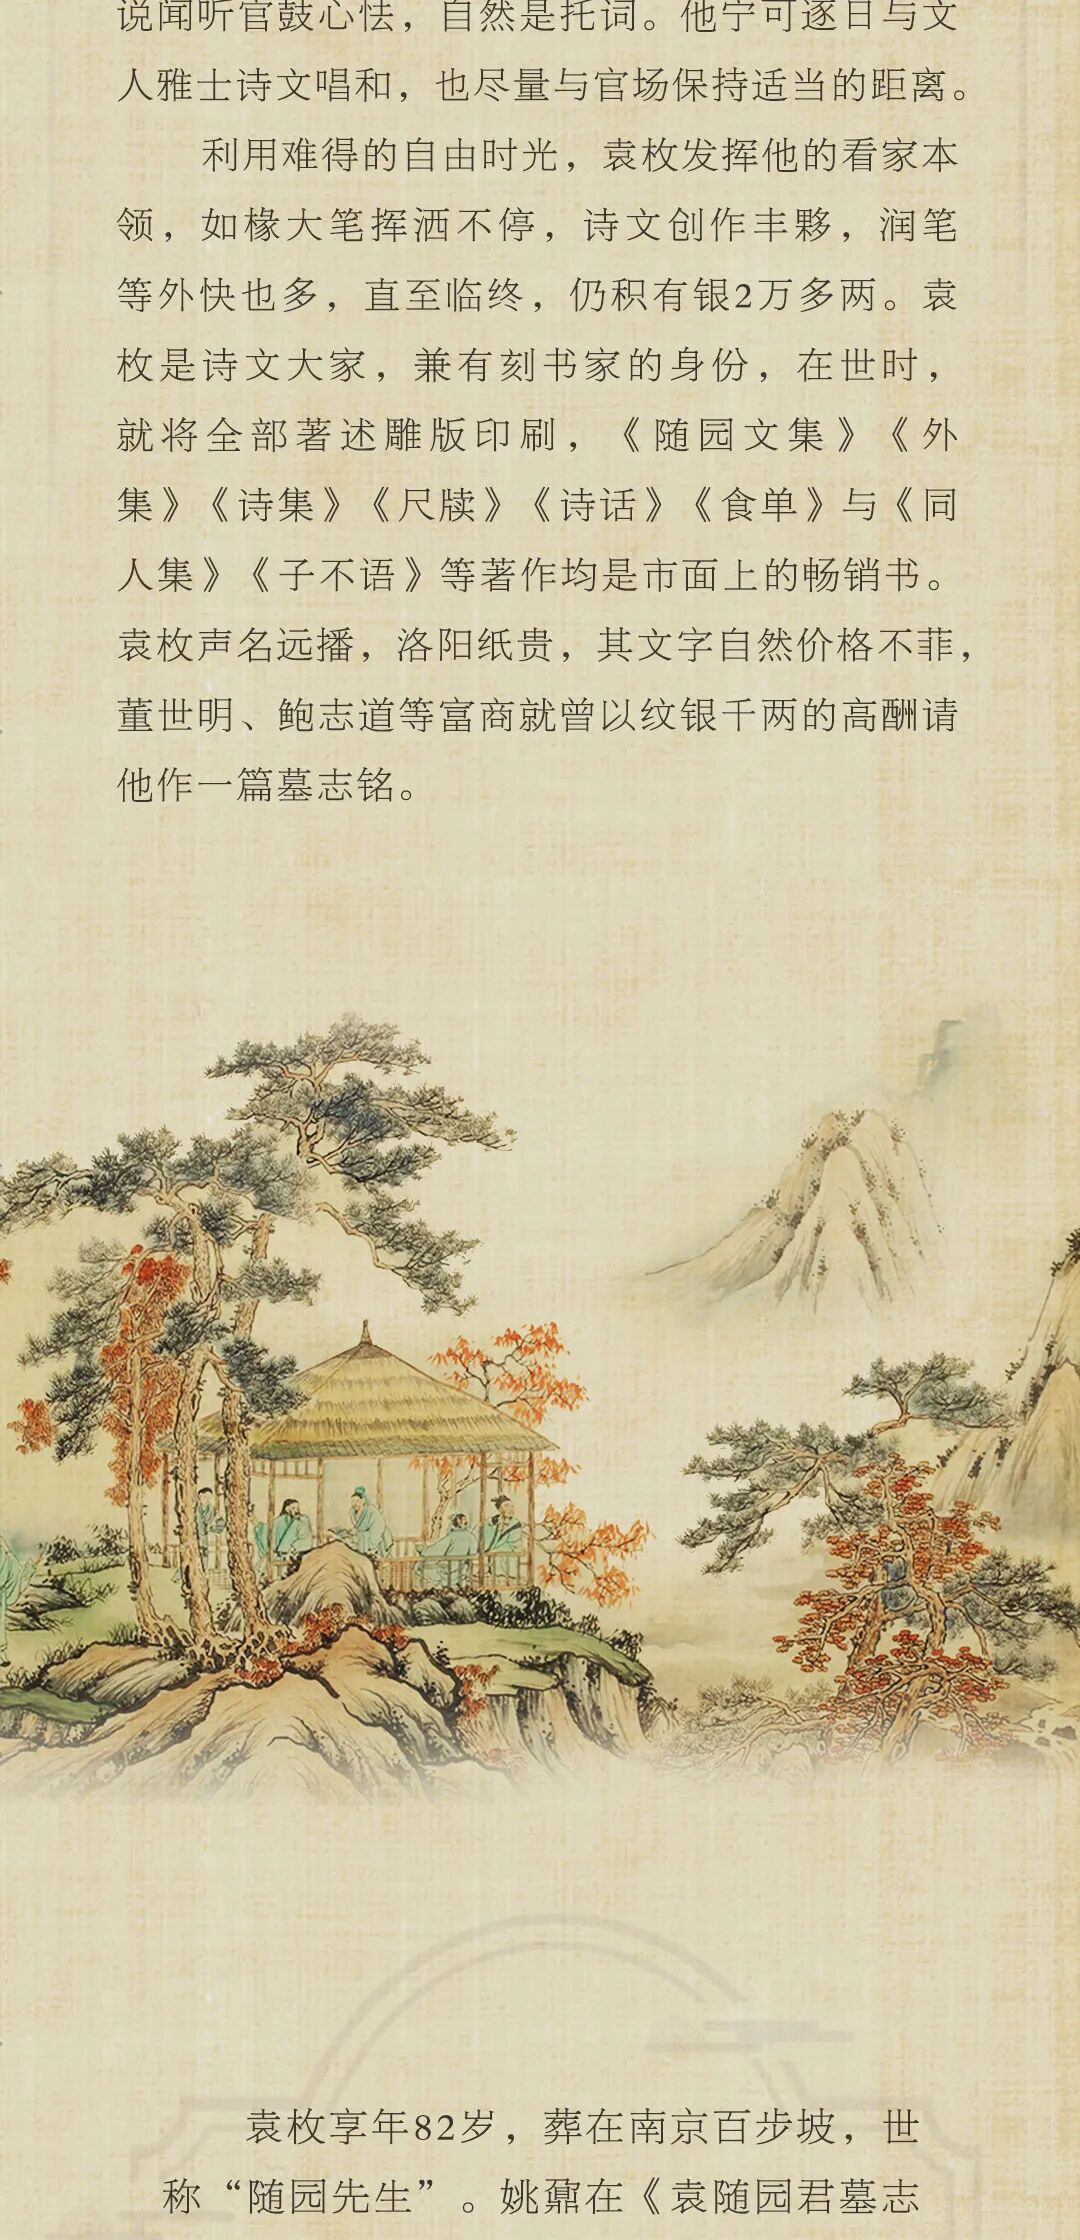 说闻听官鼓心怯，自然是托词。他宁可逐日与文
人雅士诗文唱和，也尽量与官场保持适当的距离。
利用难得的自由时光，袁枚发挥他的看家本
领，如椽大笔挥洒不停，诗文创作丰夥，润笔
等外快也多，直至临终，仍积有银2万多两。袁
枚是诗文大家，兼有刻书家的身份，在世时，
就将全部著述雕版印刷，《随园文集》《外
集》《诗集》《尺牍》《诗话》《食单》与《同
人集》《子不语》等著作均是市面上的畅销书。
袁枚声名远播，洛阳纸贵，其文字自然价格不菲，
董世明、鲍志道等富商就曾以纹银千两的高酬请
他作一篇墓志铭。
袁枚享年82岁，葬在南京百步坡，世
称“随园先生”。姚鼐在《袁随园君墓志